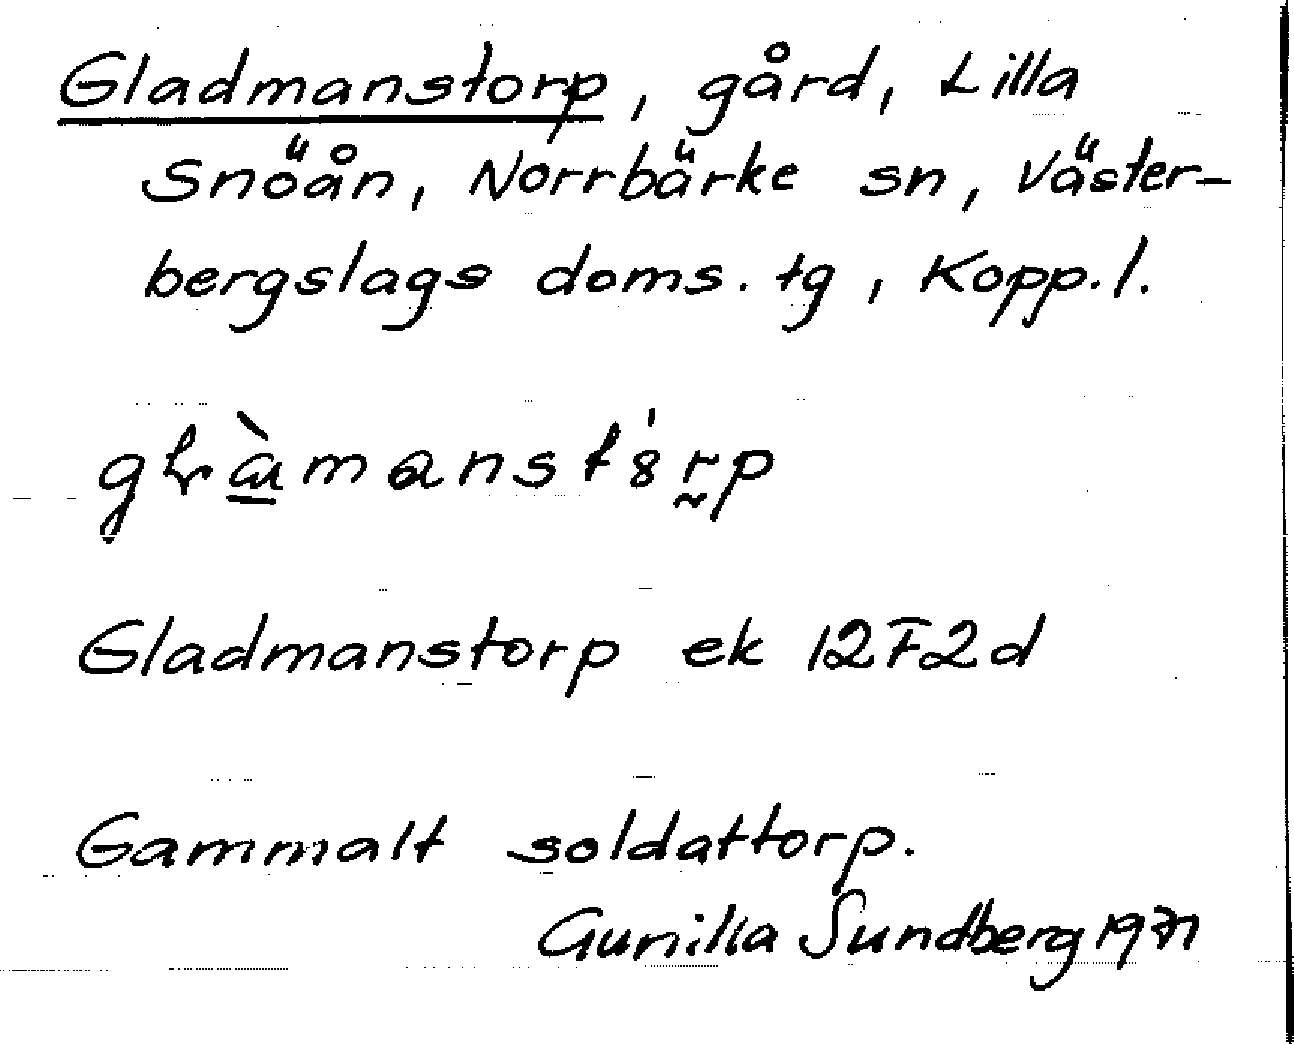 Gladmanstorp, gård, Lilla
Snöån, Norrbärke sn, Väster-
bergslags doms. tg, Kopp. l.
Gladmanstorp ek 12F2d
Gammalt soldattorp.
Gunilla Sundberg 1971